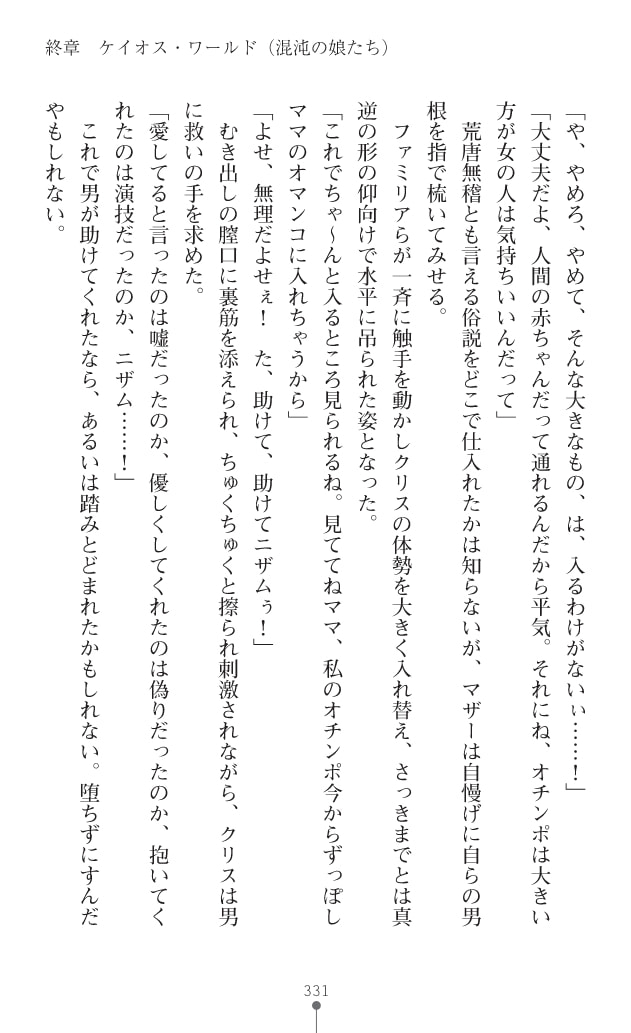 終章　ケイオス・ワールド（混沌の娘たち）
「や、やめろ、やめて、そんな大きなもの、は、入るわけがないぃ……！」
「大丈夫だよ、人間の赤ちゃんだって通れるんだから平気。それにね、オチンポは大きい
方が女の人は気持ちいいんだって」
　荒唐無稽とも言える俗説をどこで仕入れたかは知らないが、マザーは自慢げに自らの男
根を指で梳いてみせる。
　ファミリアらが一斉に触手を動かしクリスの体勢を大きく入れ替え、さっきまでとは真
逆の形の仰向けで水平に吊られた姿となった。
「これでちゃ～んと入るところ見られるね。見ててねママ、私のオチンポ今からずっぽし
ママのオマンコに入れちゃうから」
「よせ、無理だよせぇ！　た、助けて、助けてニザムぅ！」
　むき出しの膣口に裏筋を添えられ、ちゅくちゅくと擦られ刺激されながら、クリスは男
に救いの手を求めた。
「愛してると言ったのは嘘だったのか、優しくしてくれたのは偽りだったのか、抱いてく
れたのは演技だったのか、ニザム……！」
　これで男が助けてくれたなら、あるいは踏みとどまれたかもしれない。堕ちずにすんだ
やもしれない。
331